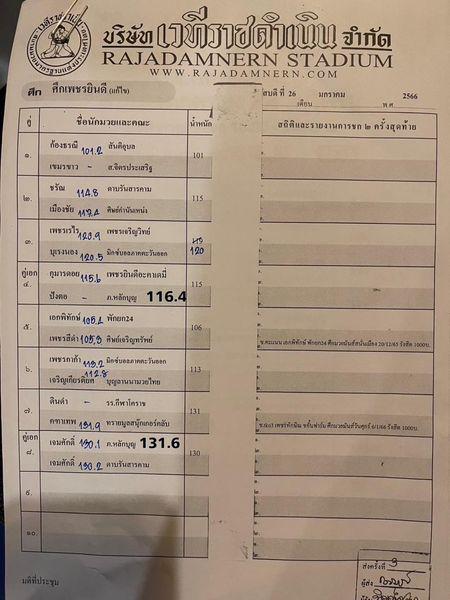 บริษัท เวทีราชดำเนิน จำกัด
RAJADAMNERN STADIUM
WWW.RAJADAMNERN.COM
ศึก ศึกเพชรยินดี (แก้ไข) 26 มกราคม 2566
เดือน พ.ศ
คู่ ชื่อนักมวยและคณะ น้ำหนัก สถิติและรายงานการชก ๒ ครั้งสุดท้าย
๑. ก้องธรณี 101.2 สันติอุบล 101
เขมรขาว - ส.จิตรประเสริฐ
๒. ขรัณ 114.8 ดาบรันสารคาม 115
เมืองชัย ศิษย์กำนันเหน่ง
๓. เพชรเรไร 120.9 เพชรเจริญวิทย์ 115
บุเรงนอง 120.5 มิกซ์บอลภาคตะวันออก 120
คู่เอก กุมารดอย 115.6 เพชรยินดีอะคาเดมี่ 115
๔. ปังตอ - ภ.หลักบุญ 116.4
๕. เอกพิทักษ์ 105.2 พักยก24 106
เพชรสีดำ 105.3 ศิษย์เจริญทรัพย์
๖. เพชรกาก้า 113.2 มิกซ์บอลภาคตะวันออก 113
เจริญเกียรติยศ 112.8 บุญลานนามวยไทย
๗. ดินดำ - รร.กีฬาโคราช 131
คทาเทพ 131.9 ทรายมูลสนุ๊กเกอร์คลับ
คู่เอก เจมศักดิ์ 130.1 ภ.หลักบุญ 131.6 130
๘. เจมศักดิ์ 130.2 ดาบรันสารคาม
๙.
๑๐.
มติที่ประชุม
ส่งครั้งที่ 3
ผู้ส่ง